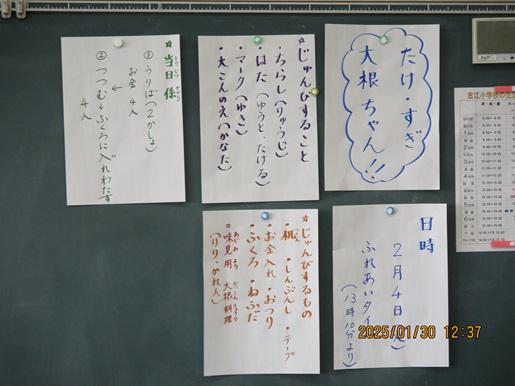 たけ・すぎ
大根ちゃん!!
☆じゅんびすること
・ちらし(りゅうじ)
・はた(ゆうと、たける)
・マーク(ゆさ)
・大こんのえ(かなた)
☆当日係
①うりば(2かしょ)
お金 4人
②つつむ→ふくろに入れわたす
4人
日時
2月4日(火)
(13時10分より)
☆じゅんびするもの
・机 ・しんぶんし ・テープ
・お金入れ ・おつり
・ふくろ ・ねふだ
味見用 大根料理
(りり・かれん)
2025/01/30 12:37